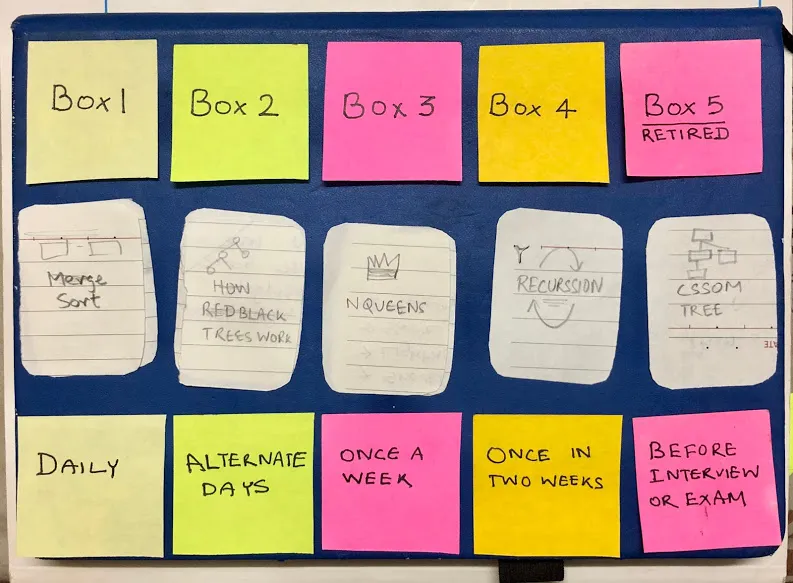 Box 1
Box 2
Box 3
Box 4
Box 5
RETIRED
Merge
Sort
HOW
REDBLACK
TREES WORK
NQUEENS
RECURSSION
CSSOM
TREE
DAILY
ALTERNATE
DAYS
ONCE A
WEEK
ONCE IN
TWO WEEKS
BEFORE
INTERVIEW
OR EXAM